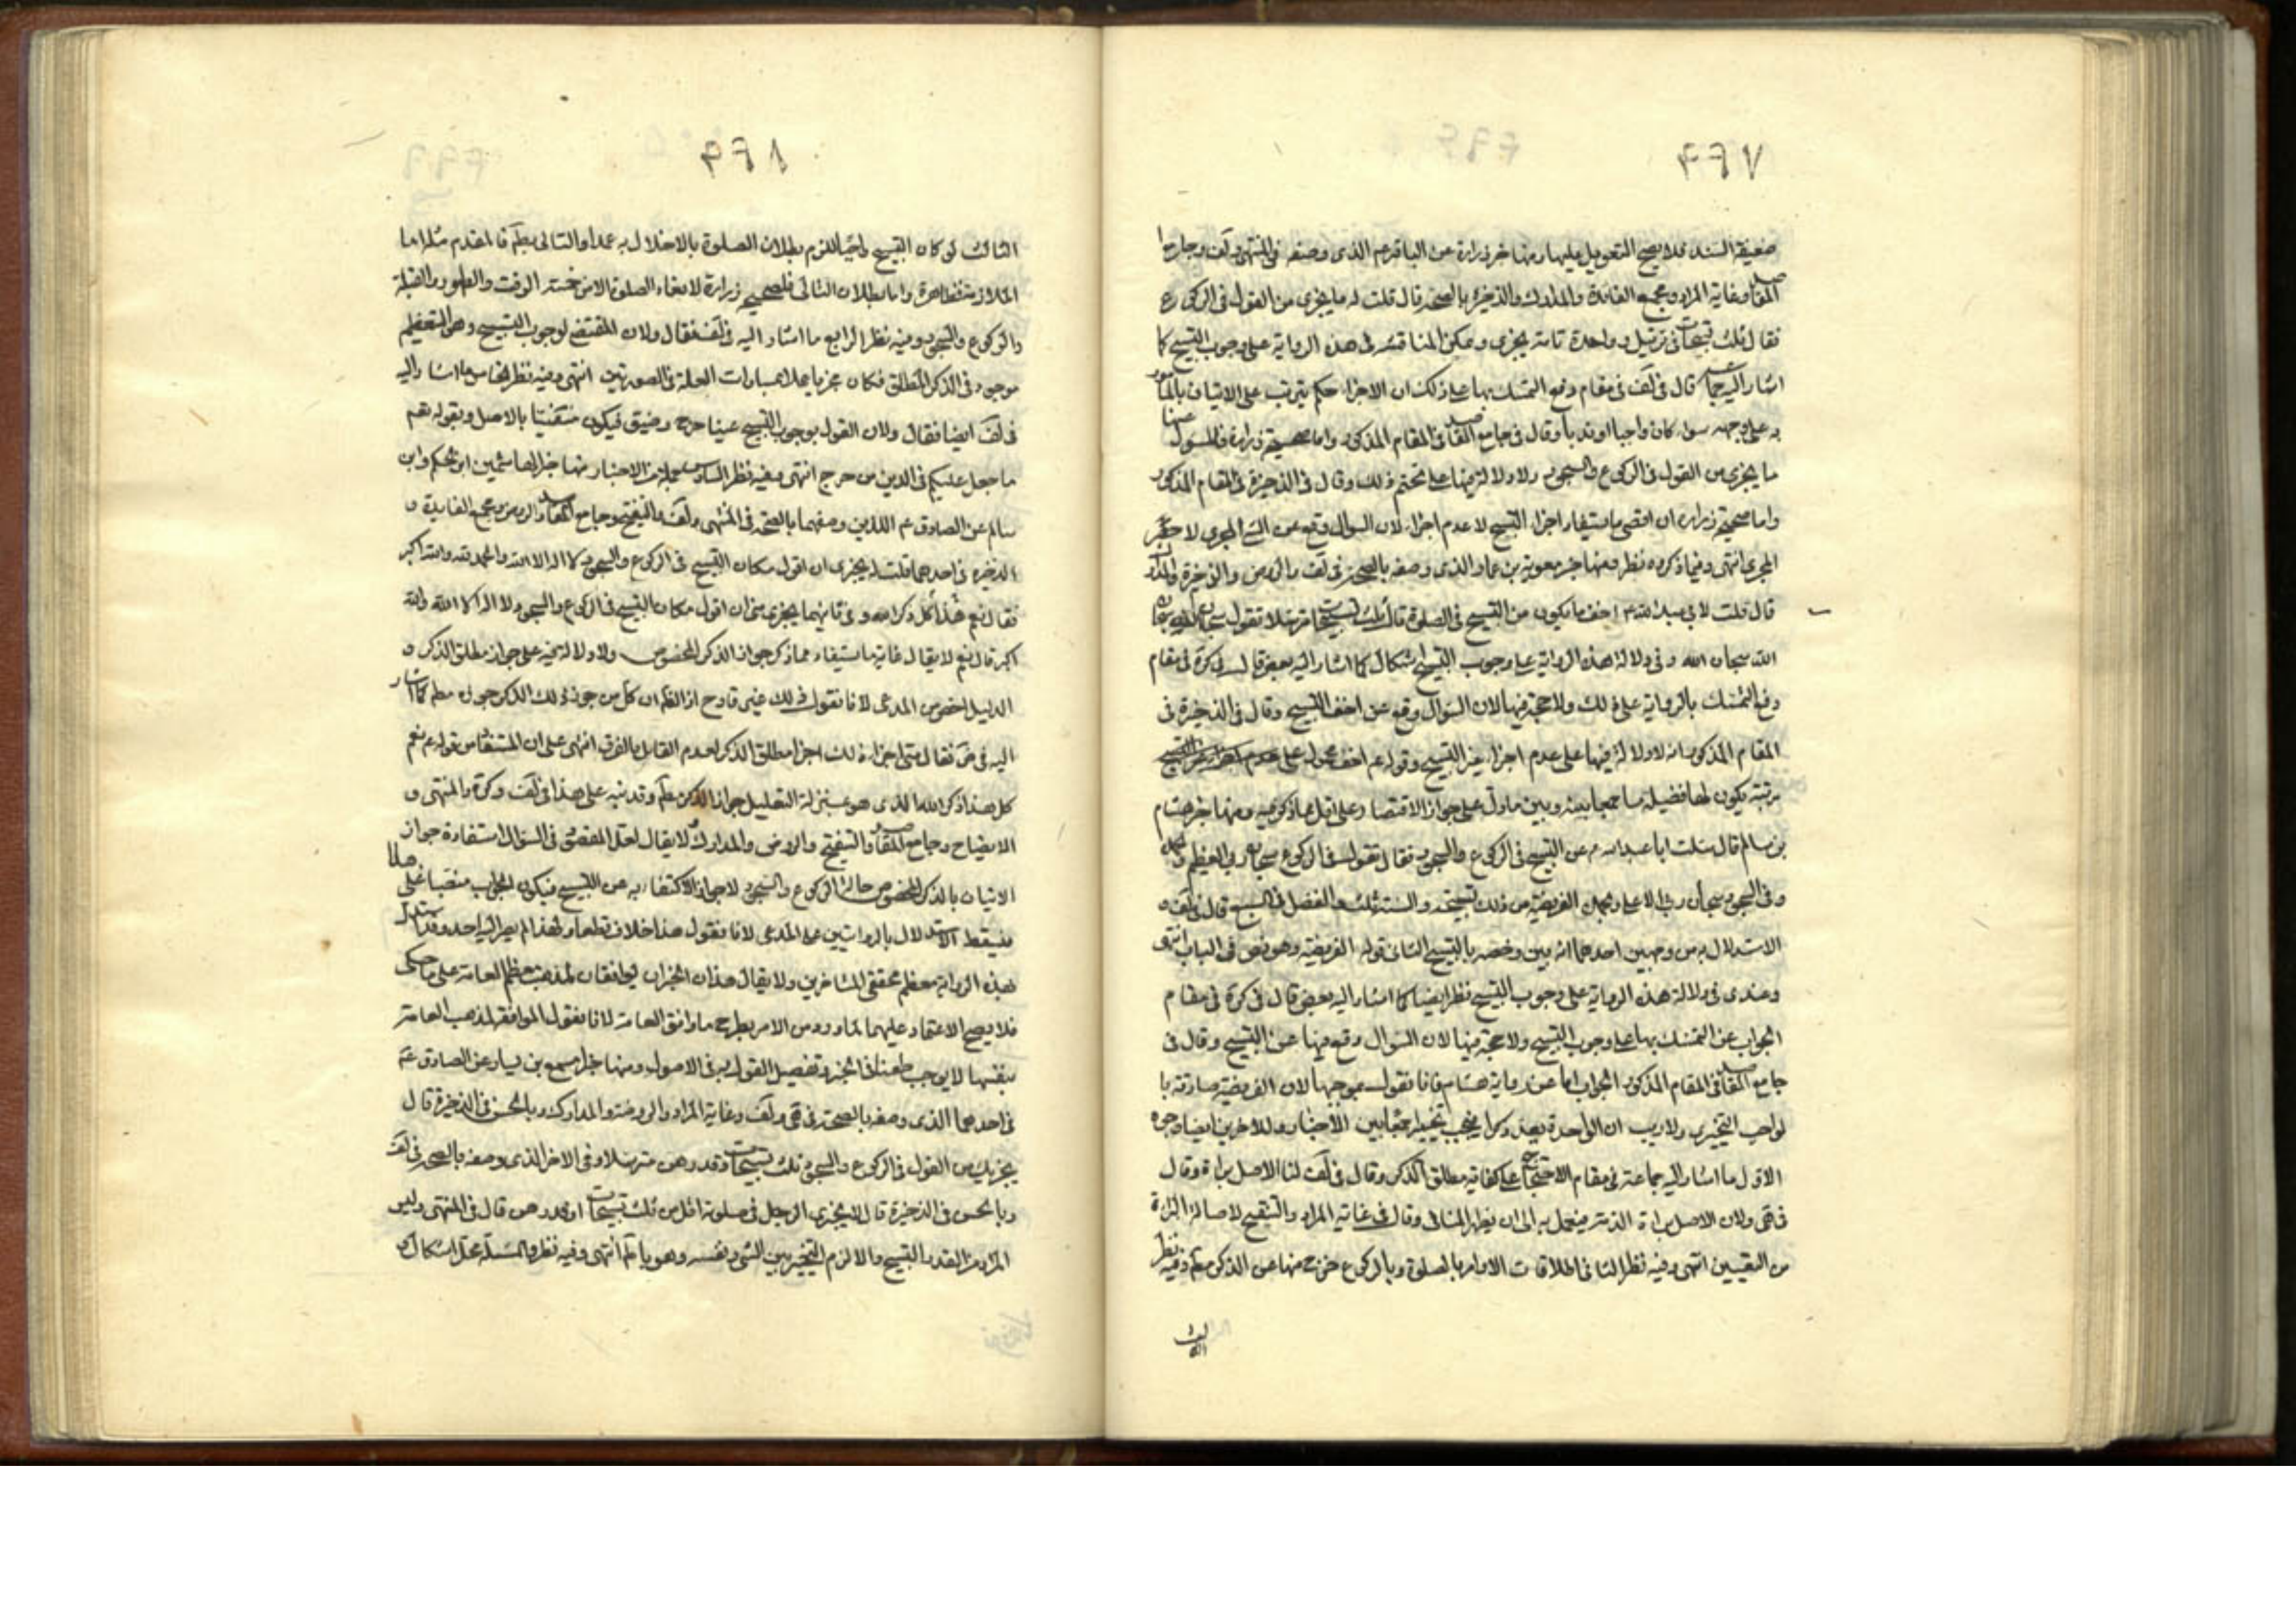 ٤٦٧
ضعيفة السند فلا يصح التعويل عليها ومنها خبر زرارة عن الباقر عم الذي وصفه في المنتهى ولف وجامع
المقاصد وغاية المراد ومجمع الفائدة والمدارك والذخيرة بالصحة قال قلت له ما يجزي من القول في الركوع
فقال ثلث تسبيحات في ترتيل وواحدة تامة يجزي ويمكن المناقشة في هذه الرواية على وجوب التسبيح كما
اشار اليه جماعة قال في لف في مقام دفع التمسك بها على ذلك ان الاجزاء حكم يترتب على الاتيان بالمأمور
به على وجهه سواء كان واجبا او ندبا وقال في جامع المقاصد في المقام المذكور واما صحيحة زرارة فالمسئول عنها
ما يجزي من القول في الركوع والسجود ولا دلالة فيها على تحتم ذلك وقال في الذخيرة في المقام المذكور
واما صحيحة زرارة ان اقصى ما يستفاد اجزاء التسبيح لا عدم اجزاء لان السؤال وقع عن الشيء المجزي لا حصر
المجزي انتهى وفيما ذكروه نظر ومنها خبر معوية بن عمار الذي وصفه بالصحة في لف والروض والذخيرة والمدارك
قال قلت لابي عبد الله ع اخف ما يكون من التسبيح في الصلوة قال ثلث تسبيحات مترسلا تقول سبحان الله سبحان
الله سبحان الله وفي دلالة هذه الرواية على وجوب التسبيح اشكال كما اشار اليه بعض قال في كرة في مقام
دفع التمسك بالرواية على ذلك ولا حجة فيها لان السؤال وقع عن اخف التسبيح وقال في الذخيرة في
المقام المذكور انه لا دلالة فيها على عدم اجزاء غير التسبيح وقوله عم اخف محمول على
مرتبة يكون لها فضيلة ما جمعا بينه وبين ما دل على جواز الاقتصار على اقل مما ذكر فيه ومنها خبر هشام
بن سالم قال سئلت ابا عبد الله م عن التسبيح في الركوع والسجود فقال تقول في الركوع سبحان ربي العظيم وبحمده
وفي السجود سبحان ربي الاعلى وبحمده الفريضة من ذلك تسبيحة والسنة ثلث والفضل في السبع قال في لف
الاستدلال به من وجهين احدهما انه بين وخصه بالتسبيح الثاني قوله الفريضة وهو نص في الباب انتهى
وعندي في دلالة هذه الرواية على وجوب التسبيح نظر ايضا كما اشار اليه بعض قال في كرة في مقام
الجواب عن التمسك بها على وجوب التسبيح ولا حجة فيها لان السؤال وقع فيها عن التسبيح وقال في
جامع المقاصد في المقام المذكور الجواب اما عن رواية هشام فانا نقول بموجبها لان الفريضة صادقة با
لواجب التخييري ولا ريب ان الواحدة يعد ذكرا يجب تخييرا جمعا بين الاخبار وللاخرين ايضا وجوه
الاول ما اشار اليه جماعة في مقام الاحتجاج على كفاية مطلق الذكر وقال في لف لنا الاصل براءة وقال
في قى ولان الاصل براءة الذمة فيعمل به الى ان يظهر المنافي وقال في غاية المراد والتنقيح لاصالة البراءة
من التعيين انتهى وفيه نظر الثاني اطلاقات الاوامر بالصلوة وبالركوع خرج منها عن الذكر مطم وفيه نظر
٤٦٨
الثالث لو كان التسبيح واجبا للزم بطلان الصلوة بالاخلال به عمدا والتالي بطم فالمقدم مثله اما
الملازمة فظاهرة واما بطلان التالي فلصحيحة زرارة لا تعاد الصلوة الا من خمسة الوقت والطهور والقبلة
والركوع والسجود وفيه نظر الرابع ما اشار اليه في لف فقال ولان المقتضي لوجوب التسبيح وهو التعظيم
موجود في الذكر المطلق فكان مجزيا عملا بمساواة العلة في الصورتين انتهى وفيه نظر الخامس ما اشار اليه
في لف ايضا فقال ولان القول بوجوب التسبيح عينا حرج وضيق فيكون منفيا بالاصل وبقوله تعم
ما جعل عليكم في الدين من حرج انتهى وفيه نظر السادس جملة من الاخبار منها خبر الهاشمين ابن الحكم وابن
سالم عن الصادق عم اللذين وصفهما بالصحة في المنتهى ولف والتنقيح وجامع المقاصد والروض ومجمع الفايدة و
الذخيرة في احدهما قلت له يجزي ان اقول مكان التسبيح في الركوع والسجود لا اله الا الله والحمد لله والله اكبر
فقال نعم هذا كل ذكر الله وفي ثانيهما يجزي عني ان اقول مكان التسبيح في الركوع والسجود لا اله الا الله والله
اكبر قال نعم لا يقال غاية ما يستفاد مما ذكر جواز الذكر المخصوص ولا دلالة فيه على جواز مطلق الذكر و
الدليل اخص من المدعى لانا نقول ذلك غير قادح اذ الظم ان كل من جوز ذلك الذكر جوزه مطم كما اشار
اليه في ض فقال متى اجزاء ذلك اجزا مطلق الذكر لعدم القائل بالفرق انتهى على ان المستفاد من قوله عم نعم
كل هذا ذكر الله الذي هو بمنزلة التعليل جواز الذكر مطم وقد نبه على هذا في لف وكرة والمنتهى و
الايضاح وجامع المقاصد والتنقيح والروض والمدارك لا يقال لعل المقصود في السؤال استفادة جواز
الاتيان بالذكر المخصوص حالة الركوع والسجود لا جواز الاكتفاء به عن التسبيح فيكون الجواب منصبا على هذا
فيسقط الاستدلال بالروايتين على المدعى لانا نقول هذا خلاف قطعا ولهذا لم يصر اليه احد وقد استدل
بهذه الرواية معظم محققي المتاخرين ولا يقال هذان الخبران يوافقان لمذهب معظم العامة على ما حكى
فلا يصح الاعتماد عليهما لما ورد من الامر بطرح ما وافق العامة لانا نقول الموافقة لمذهب العامة
بنفسها لا يوجب طعنا في الخبر وتفصيل القول به في الاصول ومنها خبر مسمع بن سيار عن الصادق عم
في احدهما الذي وصفه بالصحة في قى ولف وغاية المراد والروضة والمدارك وبالحسن في الذخيرة قال
يجزيك من القول في الركوع والسجود ثلث تسبيحات او قدرهن مترسلا وفي الاخر الذي وصفه بالصحة في لف
وبالحسن في الذخيرة قال لا يجزي الرجل في صلوته اقل من ثلث تسبيحات او قدرهن قال في المنتهى وليس
المراد من القدر التسبيح والا لزم التخيير بين الشيء ونفسه وهو باطم انتهى وفيه نظر والمسئلة محل اشكال